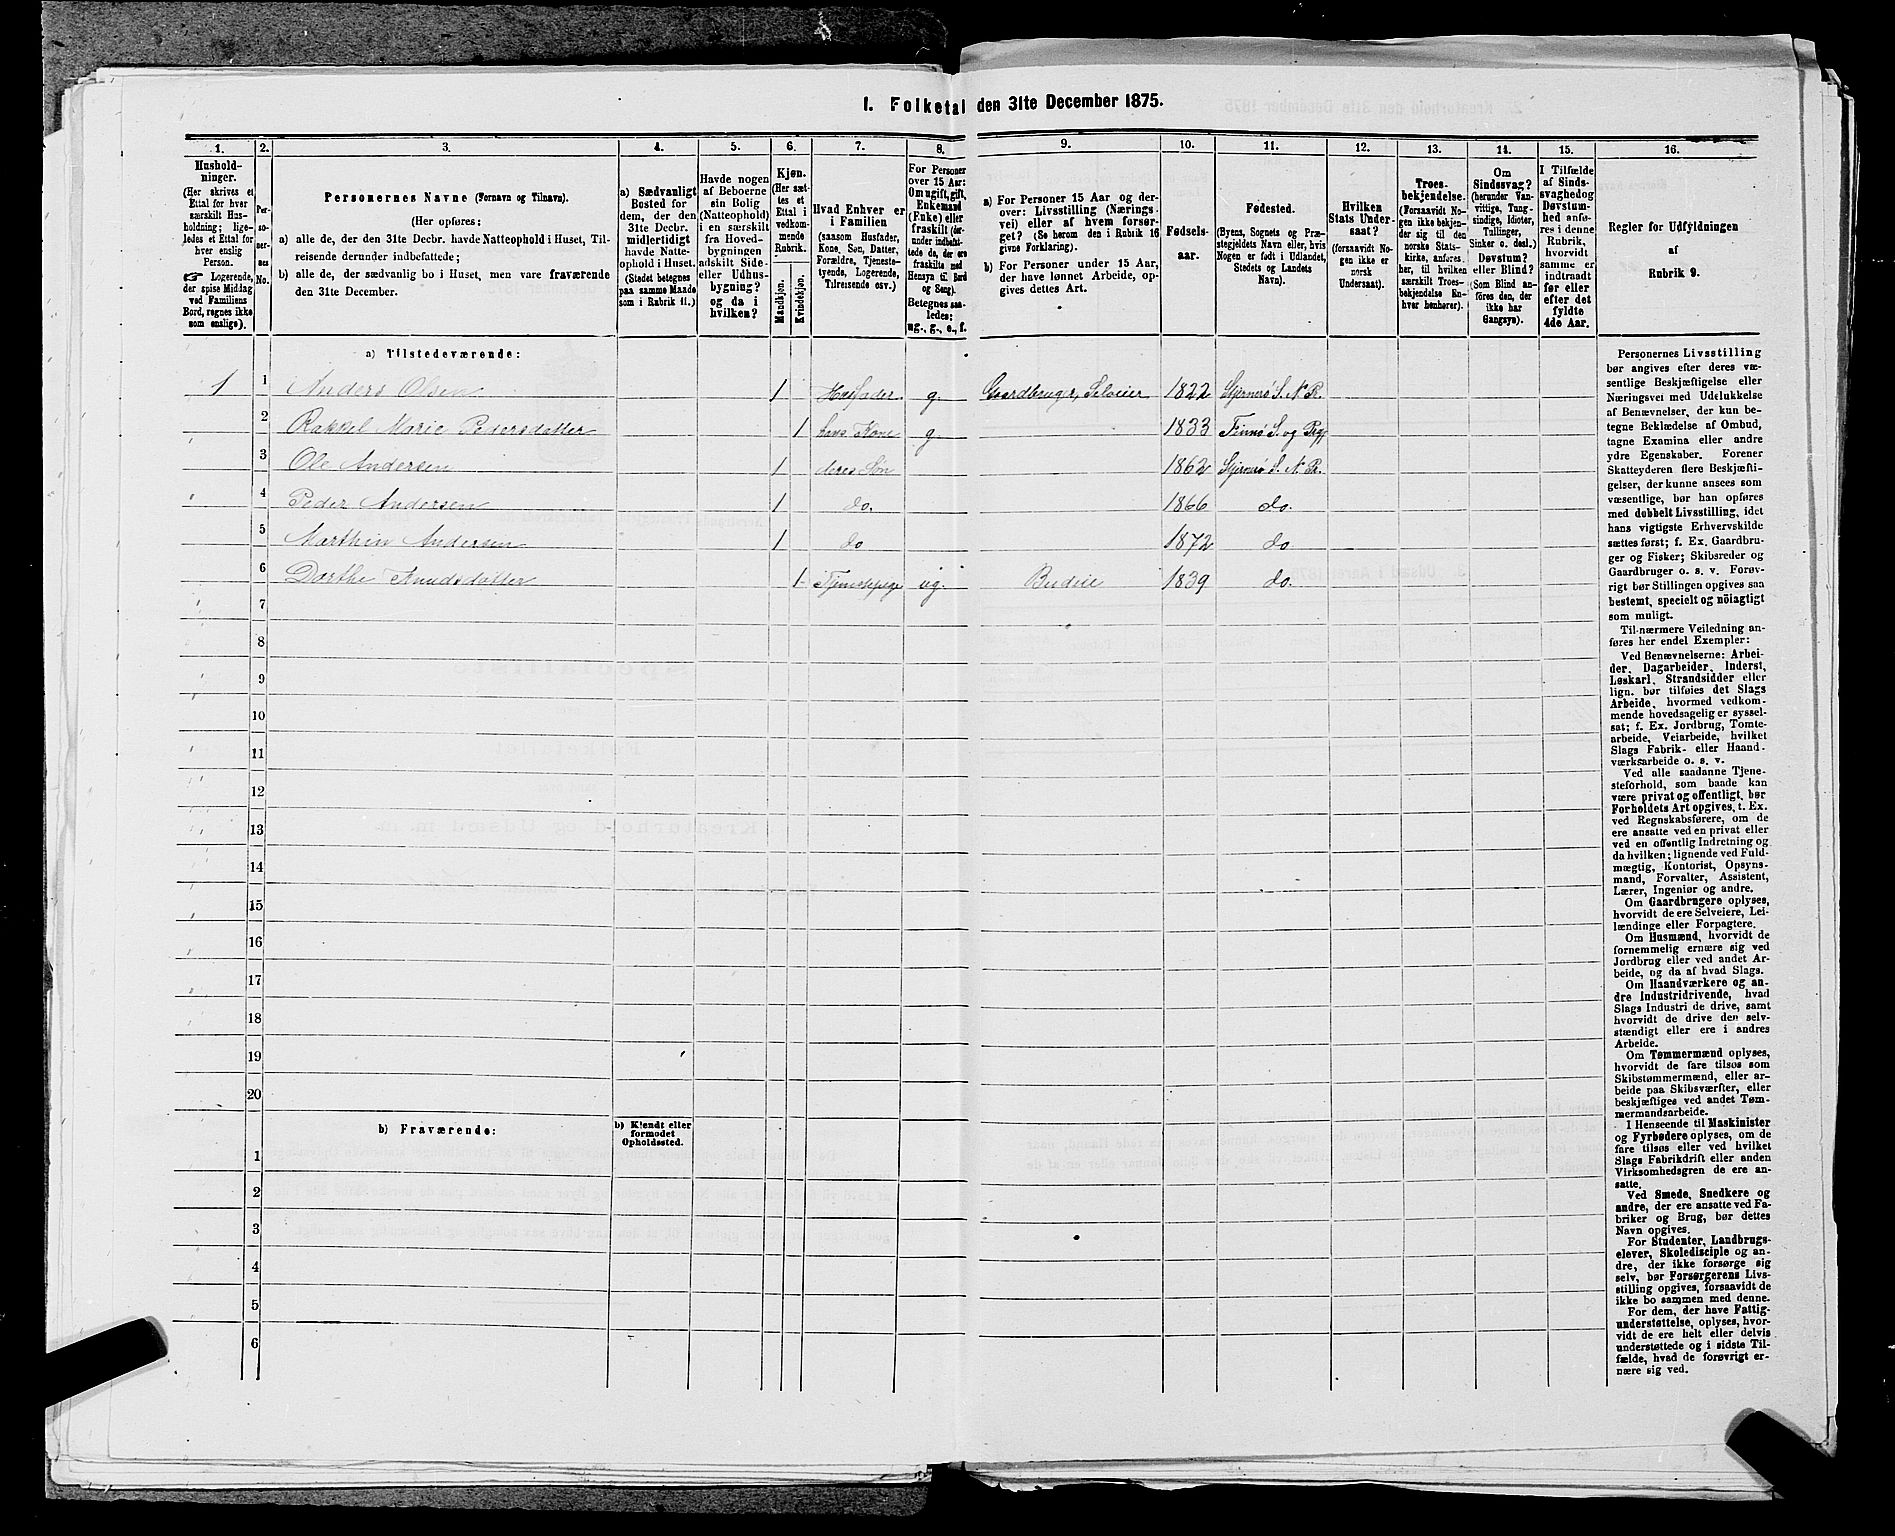 1. Folketal den 31te December 1875.
1.
2.
3.
4.
5.
6.
7.
8.
9.
10.
11.
12.
13.
14.
15.
16.
Hushold-
ninger.
(Her skrives et
Ettal for hver
særskilt Hus-
holdning; lige-
ledes et Ettal for
hver enslig
Person.
☞ Logerende,
der spise Middag
ved Familiens
Bord, regnes ikke
som enslige).
Per-
so-
ner-
nes
No.
Personernes Navne (Fornavn og Tilnavn).
(Her opføres:
a) alle de, der den 31te Decbr. havde Natteophold i Huset, Til-
reisende derunder indbefattede;
b) alle de, der sædvanlig bo i Huset, men vare fraværende
den 31te December.
a) Sædvanligt
Bosted for
dem, der den
31te Decbr.
midlertidigt
havde Natte-
ophold i Huset.
(Stedet betegnes
paa samme Maade
som i Rubrik 11.)
Havde nogen
af Beboerne
sin Bolig
(Natteophold)
i en særskilt
fra Hoved-
bygningen
adskilt Side-
eller Udhus-
bygning?
og da i
hvilken?
Kjøn.
(Her sæt-
tes et
Ettal i
vedkom-
mende
Rubrik.
Mandkjøn.
Kvindekjøn.
Hvad Enhver er
i Familien
(saasom Husfader,
Kone, Søn, Datter,
Forældre, Tjeneste-
tyende, Logerende,
Tilreisende osv.)
For Personer
over 15 Aar:
Om ugift, gift,
Enkemand
(Enke) eller
fraskilt (der-
under indbefat-
tede de, der ere
fraskilte med
Hensyn til Bord
og Seng).
Betegnes saa-
ledes:
ug., g., e., f.
a) For Personer 15 Aar og der-
over: Livsstilling (Nærings-
vei) eller af hvem forsør-
get? (Se herom den i Rubrik 16
givne Forklaring).
b) For Personer under 15 Aar,
der have lønnet Arbeide, op-
gives dettes Art.
Fødsels-
aar.
Fødested.
(Byens, Sognets og Præ-
stegjeldets Navn eller, hvis
Nogen er født i Udlandet,
Stedets og Landets
Navn).
Hvilken
Stats Under-
saat?
(forsaavidt No-
gen ikke er
norsk
Undersaat).
Troes-
bekjendelse.
(Forsaavidt No-
gen ikke bekjen-
der sig til den
norske Stats-
kirke, anføres
her, til hvilken
særskilt Troes-
bekjendelse En-
hver henhører).
Om
Sindssvag?
(herunder Van-
vittige, Tung-
sindige, Idioter,
Tullinger,
Sinker o. desl.)
Døvstum?
eller Blind?
(Som Blind an-
føres den, der
ikke har
Gangsyn).
I Tilfælde
af Sinds-
svaghed og
Døvstum-
hed anfø-
res i denne
Rubrik,
hvorvidt
samme er
indtraadt
før eller
efter det
fyldte
4de Aar.
Regler for Udfyldningen
af
Rubrik 9.
a) Tilstedeværende:
1 1 Anders Olsen 1 Husfader g. Gaardbruger, Selveier 1822 Stjernrø S. N. P.
2 Rakkel Marie Pedersdatter 1 hans Kone g. 1833 Finnø S. og Prgj
3 Ole Andersen 1 deres Søn 1862 Stjernrø S. N. P.
4 Peder Andersen 1 do. 1866 do.
5 Marthin Andersen 1 do 1872 do.
6 Dorthe Knudsdatter 1 ug. Budeie 1839 do.
7
8
9
10
11
12
13
14
15
16
17
18
19
20
b) Fraværende:
b) Kjendt eller
formodet
Opholdssted.
1
2
3
4
5
6
Personernes Livsstilling
bør angives efter deres væ-
sentlige Beskjæftigelse eller
Næringsvei med Udelukkelse
af Benævnelser, der kun be-
tegne Beklædelse af Ombud,
tagne Examina eller andre
ydre Egenskaber. Forener
Skatteyderen flere Beskjæfti-
gelser, der kunne ansees som
væsentlige, bør han opføres
med dobbelt Livsstilling, idet
hans vigtigste Erhvervskilde
sættes først; f. Ex. Gaardbru-
ger og Fisker; Skibsreder og
Gaardbruger o. s. v. Forøv-
rigt bør Stillingen opgives saa
bestemt, specielt og nöiagtigt
som muligt.
Til nærmere Veiledning an-
føres her endel Exempler:
Ved Benævnelserne: Arbei-
der, Dagarbeider, Inderst,
Løskarl, Strandsidder eller
lign. bør tilføies det Slags
Arbeide, hvormed vedkom-
mende hovedsagelig er syssel-
sat; f. Ex. Jordbrug, Tomte-
arbeide, Veiarbeide, hvilket
Slags Fabrik- eller Haand-
værksarbeide o. s. v.
Ved alle saadanne Tjene-
steforhold, som baade kan
være privat og offentligt, bør
Forholdets Art opgives, t. Ex.
ved Regnskabsførere, om de
ere ansatte ved en privat eller
ved en offentlig Indretning og
da hvilken; lignende ved Fuld-
mægtig, Kontorist, Opsyns-
mand, Forvalter, Assistent,
Lærer, Ingeniør og andre.
Om Gaardbrugere oplyses,
hvorvidt de ere Selveiere, Lei-
lændinge eller Forpagtere.
Om Husmænd, hvorvidt de
fornemmelig ernære sig ved
Jordbrug eller ved andet Ar-
beide, og da af hvad Slags.
Om Haandværkere og an-
dre Industridrivende, hvad
Slags Industri de drive, samt
hvorvidt de drive den selv-
stændigt eller ere i andres
Arbeide.
Om Tømmermænd oplyses,
hvorvidt de fare tilsøs som
Skibstømmermænd, eller ar-
beide paa Skibsværfter, eller
beskjæftiges ved andet Tøm-
mermandsarbeide.
I Henseende til Maskinister
og Fyrbødere oplyses, om de
fare tilsøs eller ved hvilket
Slags Fabrikdrift eller anden
Virksomhedsgren de ere an-
satte.
Ved Smede, Snedkere og
andre, der ere ansatte ved Fa-
briker og Brug, bør dettes
Navn opgives.
For Studenter, Landbrugs-
elever, Skoledisciple og an-
dre, der ikke forsørge sig
selv, bør Forsørgerens Livs-
stilling opgives, forsaavidt de
ikke bo sammen med denne.
For dem, der have Fattig-
understøttelse, oplyses, hvor-
vidt de ere helt eller delvis
understøttede og i sidste Til-
fælde, hvad de forøvrigt er-
nære sig ved.